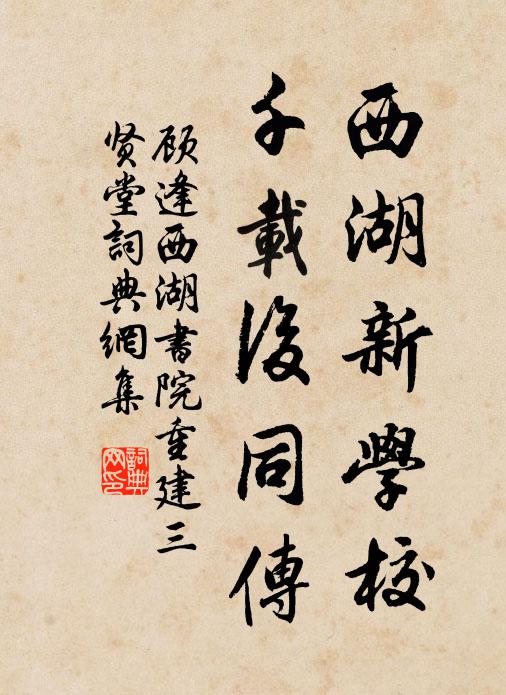 西湖新學校
千載後同傳
顾逢西湖書院重建三
贤堂詞典網集
詞典網印